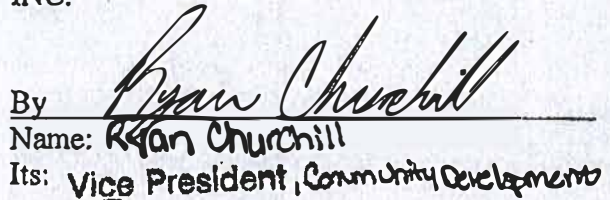 INC.
By Ryan Churchill
Name: Ryan Churchill
Its: Vice President, Community Development